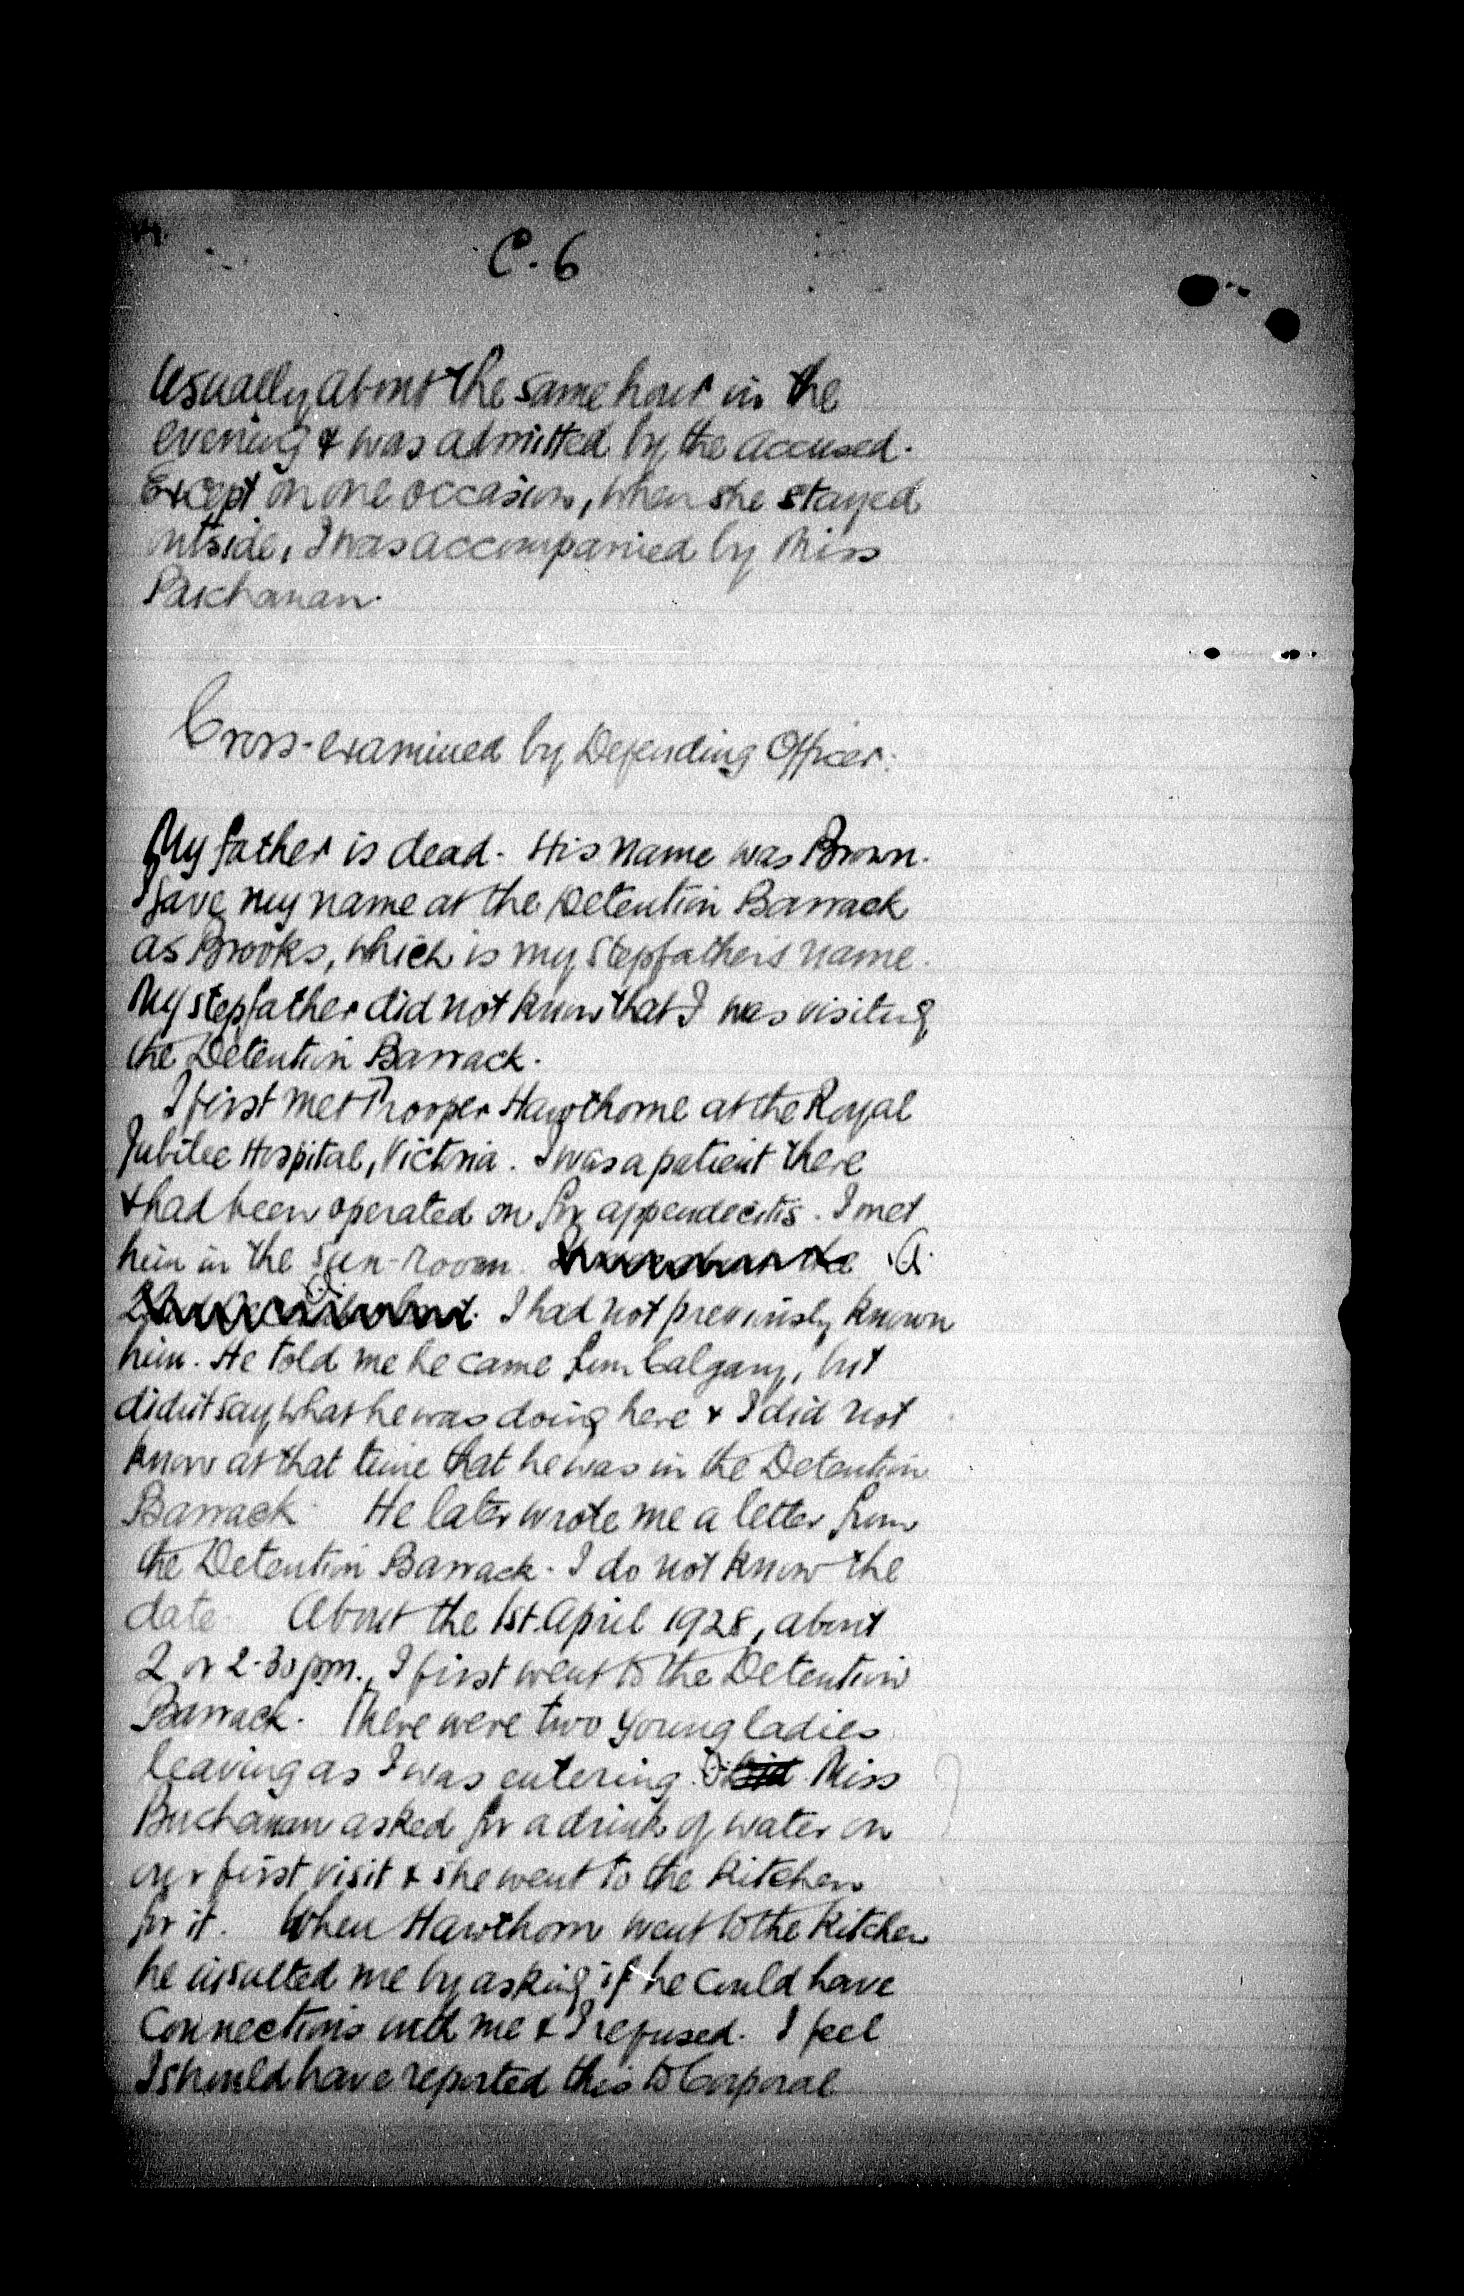 C. 6
Usually about the same hour in the
evening & was admitted by the accused.
Except on one occasion, when she stayed
outside, I was accompanied by Miss
Buchanan.
Cross-examined by Defending Officer:
My father is dead. His name was Brown.
I gave my name at the Detention Barrack
as Brooks, which is my stepfather's name.
My stepfather did not know that I was visiting
the Detention Barrack.
I first met Trooper Hawthorne at the Royal
Jubilee Hospital, Victoria. I was a patient there
& had been operated on for appendecitis. I met
him in the sun-room.
I had not previously known
him. He told me he came from Calgary, but
didn't say what he was doing here & I did not
know at that time that he was in the Detention
Barrack. He later wrote me a letter from
the Detention Barrack. I do not know the
date. About the 1st. April 1928, about
2 or 2-30 pm., I first went to the Detention
Barrack. There were two young ladies
leaving as I was entering. Miss
Buchanan asked for a drink of water on
our first visit & she went to the kitchen
for it. When Hawthorn went to the kitchen
he insulted me by asking if he could have
connections with me & I refused. I feel
I should have reported this to Corporal